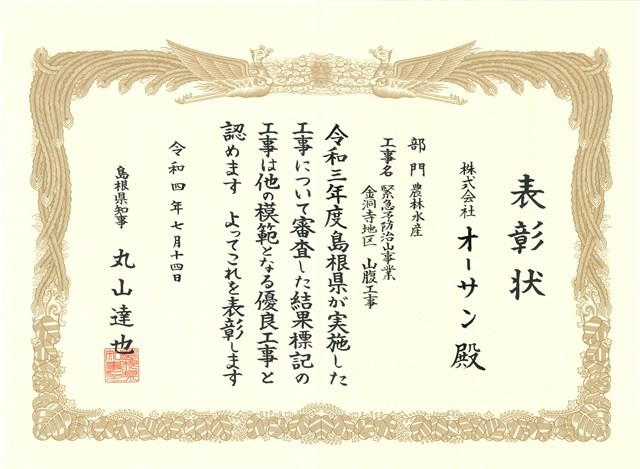 表彰状
株式会社 オーサン 殿
部門 農林水産
工事名 緊急予防治山事業
金洞寺地区 山腹工事
令和三年度島根県が実施した
工事について審査した結果標記の
工事は他の模範となる優良工事と
認めます よってこれを表彰します
令和四年七月十四日
島根県知事 丸山達也